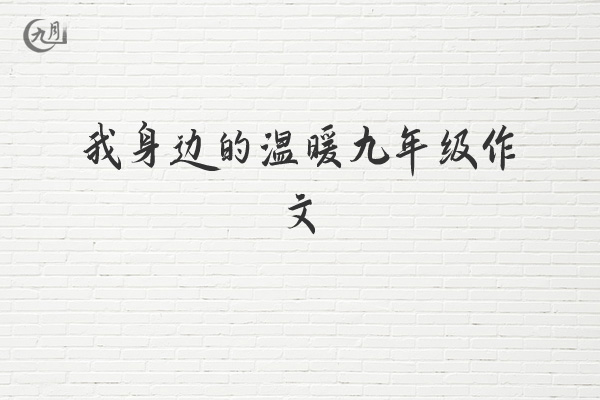 九月
我身边的温暖九年级作
文